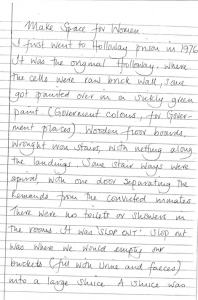 Make Space for Women
I first went to Holloway prison in 1976
It was the original Holloway, where
the cells were raw brick wall, some
got painted over in a sickly green
paint (Goverment colours, for Gover-
ment places). Wooden floor boards,
wrought iron stairs, with netting along
the landings. Some stair ways were
spiral, with one door separating the
Remands from the convicted inmates.
There were no toilets or showers in
the rooms. It was 'SLOP OUT'. Slop out
was where we would empty our
buckets (fill with urine and faeces)
into a large sluice. A sluice was